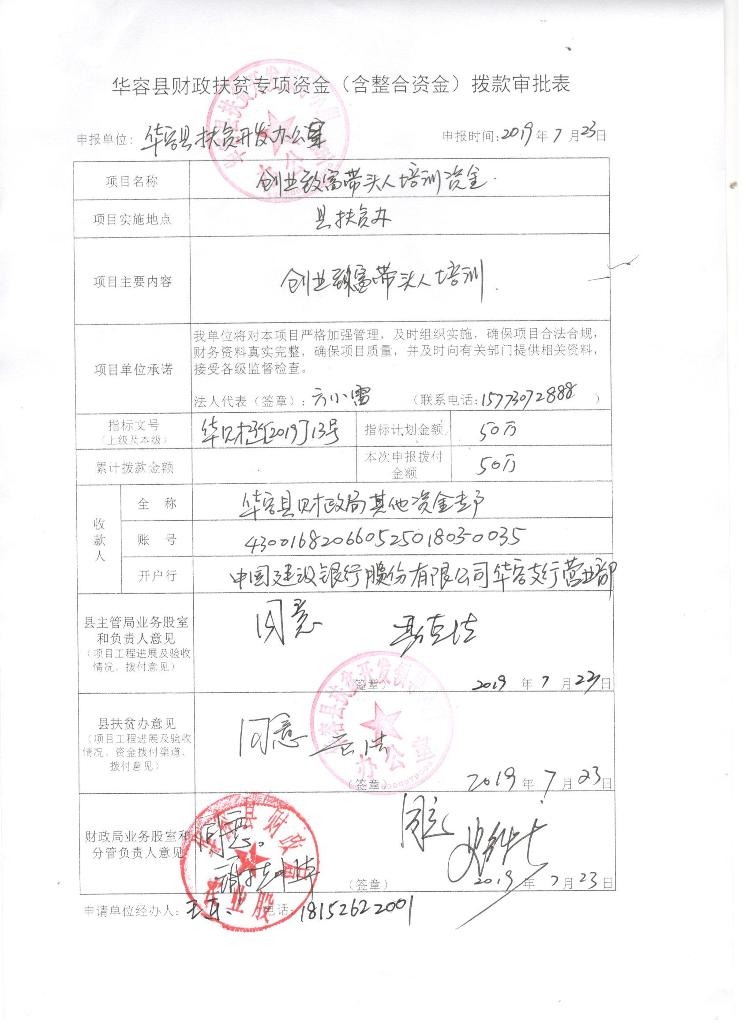 华容县财政扶贫专项资金（含整合资金）拨款审批表
申报单位：华容县扶贫开发办公室 申报时间：2019年7月23日
项目名称 创业致富带头人培训资金
项目实施地点 县扶贫办
项目主要内容 创业致富带头人培训
项目单位承诺
我单位将对本项目严格加强管理，及时组织实施，确保项目合法合规，
财务资料真实完整，确保项目质量，并及时向有关部门提供相关资料，
接受各级监督检查。
法人代表（签章）：方小雷 （联系电话：15773072888）
指标文号
（上级及本级）
华财扶[2019]13号 指标计划金额 50万
累计拨款金额
本次申报拨付
金额
50万
收款人
全称 华容县财政局其他资金专户
账号 43001682066052501803-0035
开户行 中国建设银行股份有限公司华容支行营业部
县主管局业务股室
和负责人意见
（项目工程进展及验收
情况、拨付意见）
同意
（签章） 2019年7月23日
县扶贫办意见
（项目工程进展及验收
情况、资金拨付渠道、
拨付意见）
同意
办公室
（签章） 2019年7月23日
财政局业务股室和
分管负责人意见
同意
华容县财政局
农业股
（签章） 2019年7月23日
申请单位经办人： 电话：18152622001